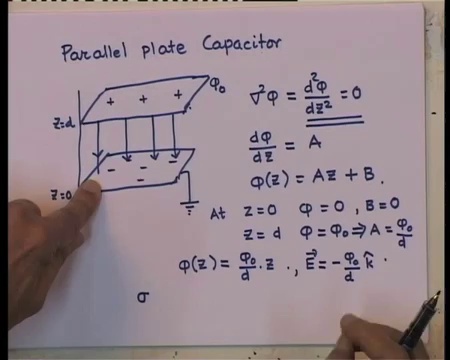 Parallel plate Capacitor
φ₀
+ + +
z=d
- - - -
z=0
∇²φ = d²φ/dz² = 0
dφ/dz = A
φ(z) = Az + B.
At z=0 φ=0, B=0
z=d φ=φ₀ ⇒ A = φ₀/d
φ(z) = φ₀/d · z ., E⃗ = -φ₀/d k̂ .
σ